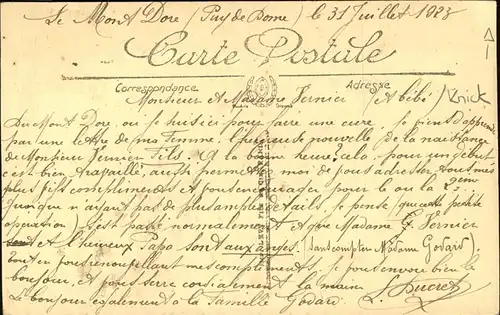 Le Mont Dore (Puy de Dome) le 31 Juillet 1923
Carte Postale
Correspondance
Adresse
Knick
Monsieur et Madame Fernier (et bébé)
Du Mont Dore, où je suis ici pour faire une cure je viens d'apprendre
par une lettre de ma femme, l'heureuse nouvelle de la naissance
de Monsieur Fernier Fils. A la bonne heure! cela, pour un début
c'est bien travaillé, aussi permettez moi de vous adresser tous mes
plus fins compliments et pour encourager pour le ou la 2ème
(quoique n'ayant pas de plus amples détails je pense que cette petite
opération) s'est passé normalement et que Madame G. Fernier
et l'heureux Papa sont aux anges. (sans compter Madame Godard)
Tout en vous renouvellant mes compliments, je vous envoie bien le
bonjour, et vous serre cordialement la main
Le bonjour également à la Famille Godard. L. Ducret